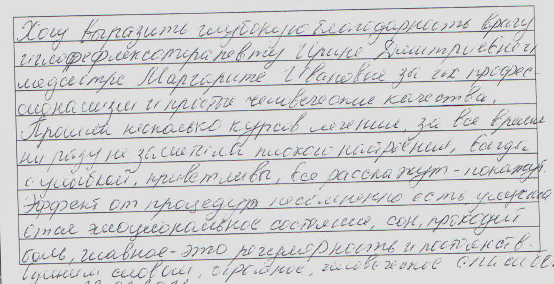 Хочу выразить глубокую благодарность врачу
иглорефлексотерапевту Ирине Дмитриевне и
медсестре Маргарите Ивановне за их профес-
сионализм и просто человеческие качества.
Прошла несколько курсов лечения, за все время
ни разу не заметила плохого настроения, всегда
с улыбкой, приветливы, все расскажут - покажут.
Эффект от процедур несомненно есть, улучша
ется эмоциональное состояние, сон, проходит
боль, главное - это регулярность и постоянств
Одним словом, огромное, человеческое спасибо